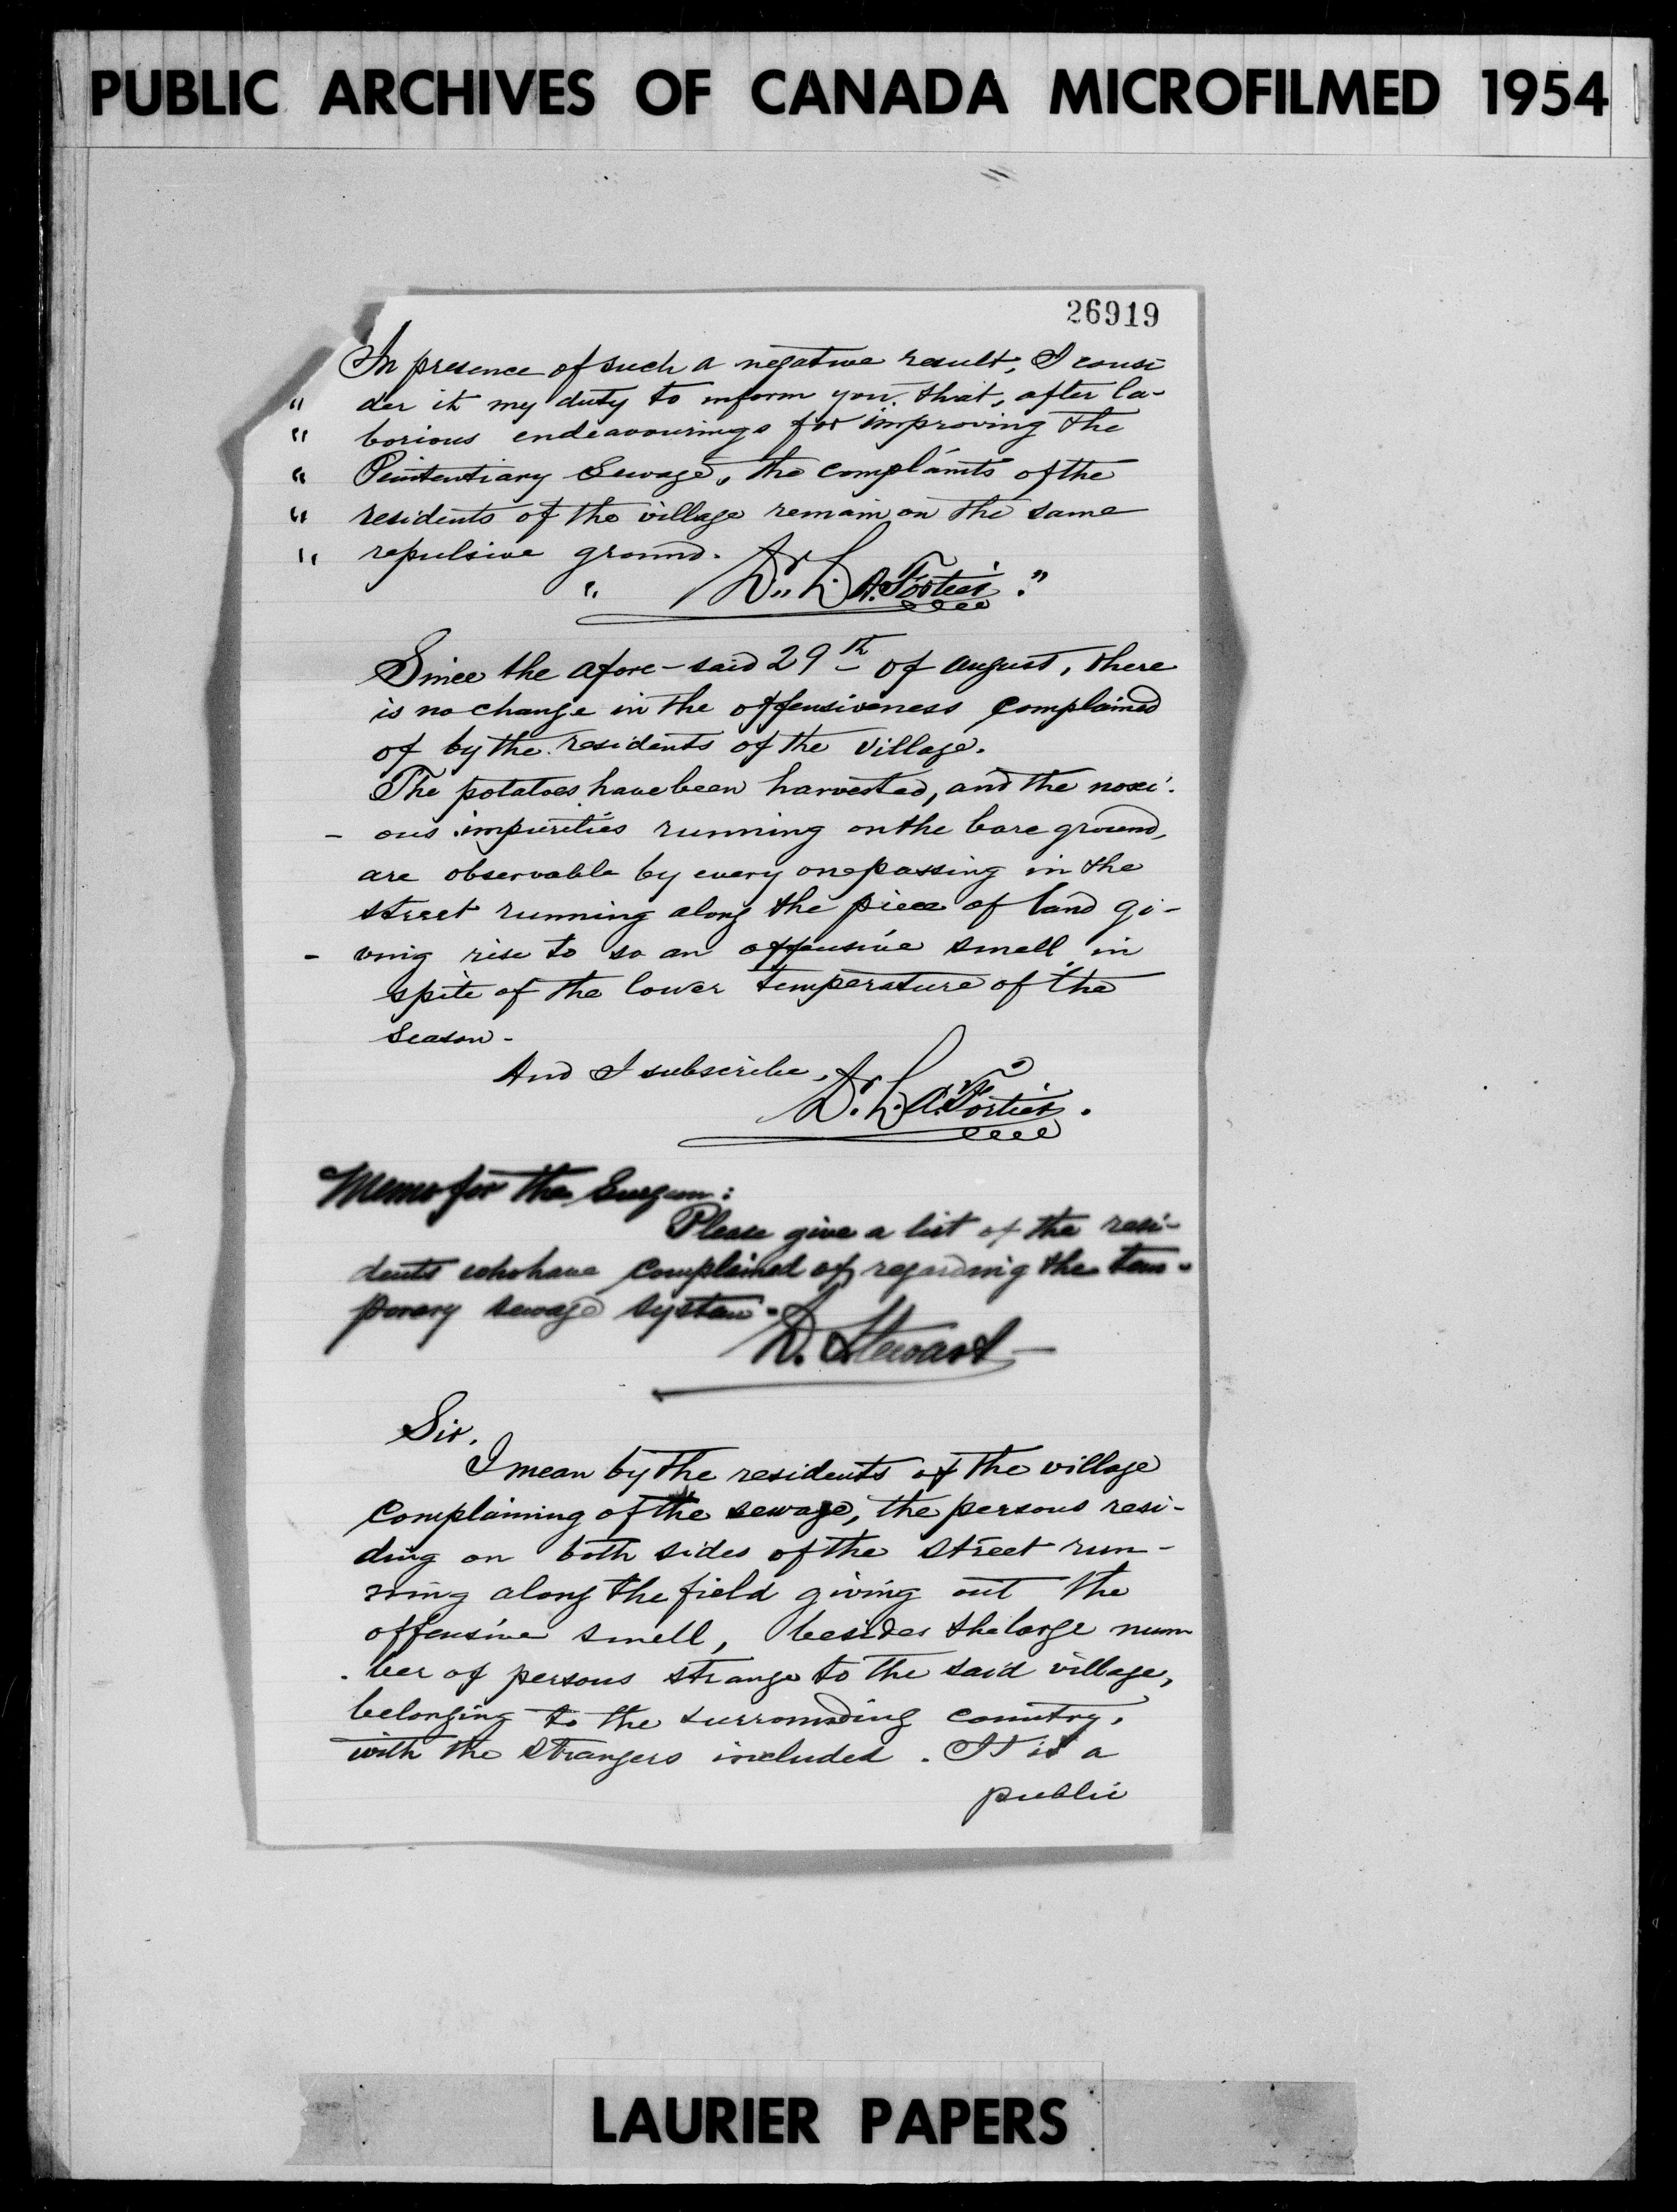 PUBLIC ARCHIVES OF CANADA MICROFILMED 1954
26919
In presence of such a negative result, I consi
" der it my duty to inform you that, after la-
" borious endeavourings for improving the
" Penitentiary Sewage, the complaints of the
" residents of the village remain on the same
" repulsive ground.
" Dr. L. A. Fortier."
Since the afore-said 29th of august, there
is no change in the offensiveness complained
of by the residents of the village.
The potatoes have been harvested, and the noxi
- ous impurities running on the bare ground,
are observable by every one passing in the
street running along the piece of land gi-
- ving rise to so an offensive smell in
spite of the lower temperature of the
season -
And I subscribe,
Dr. L. A. Fortier.
Memo for the Surgeon:
Please give a list of the resi-
dents who have complained of regarding the tem-
porary sewage system.
D. Stewart
Sir,
I mean by the residents of the village
complaining of the sewage, the persons resi-
ding on both sides of the street run-
ning along the field giving out the
offensive smell, besides the large num
- ber of persons strange to the said village,
belonging to the surrounding country,
with the strangers included. It is a
public
LAURIER PAPERS